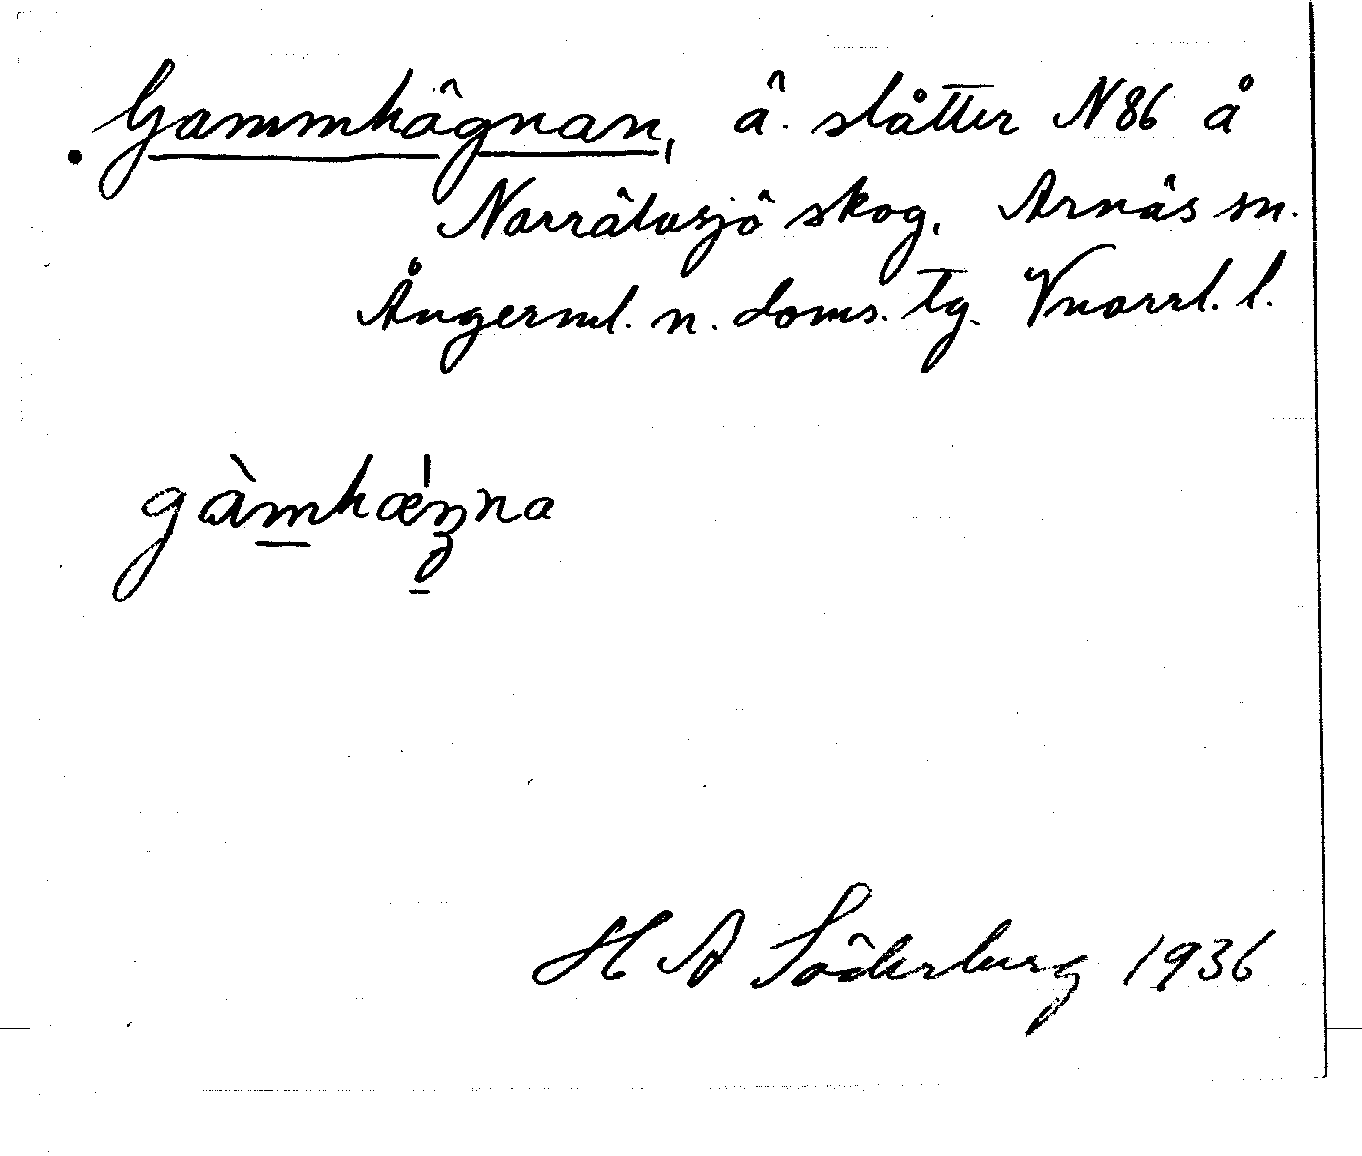 Gammhägnan, ä. slåtter N86 å
Norrälvsjö skog. Arnäs sn.
Ångerml. n. doms. tg. Vnorrl. l.
gàmhæŋna
H A Söderberg 1936